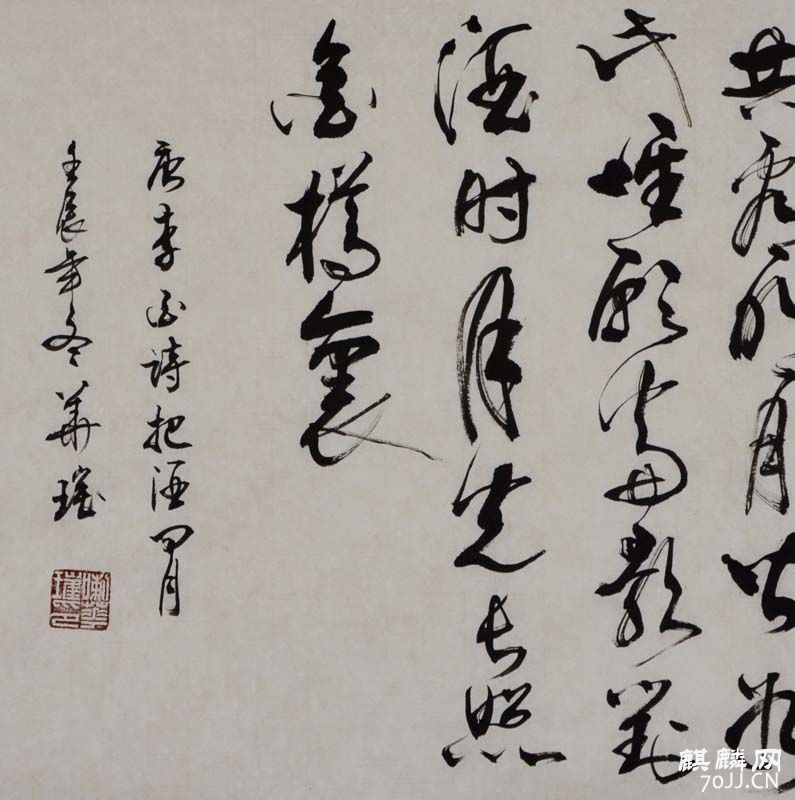 共看明月皆如
此唯愿當歌對
酒时月光长照
金樽裏
唐李白詩把酒問月
壬辰年冬華
麒麟网
70JJ.CN